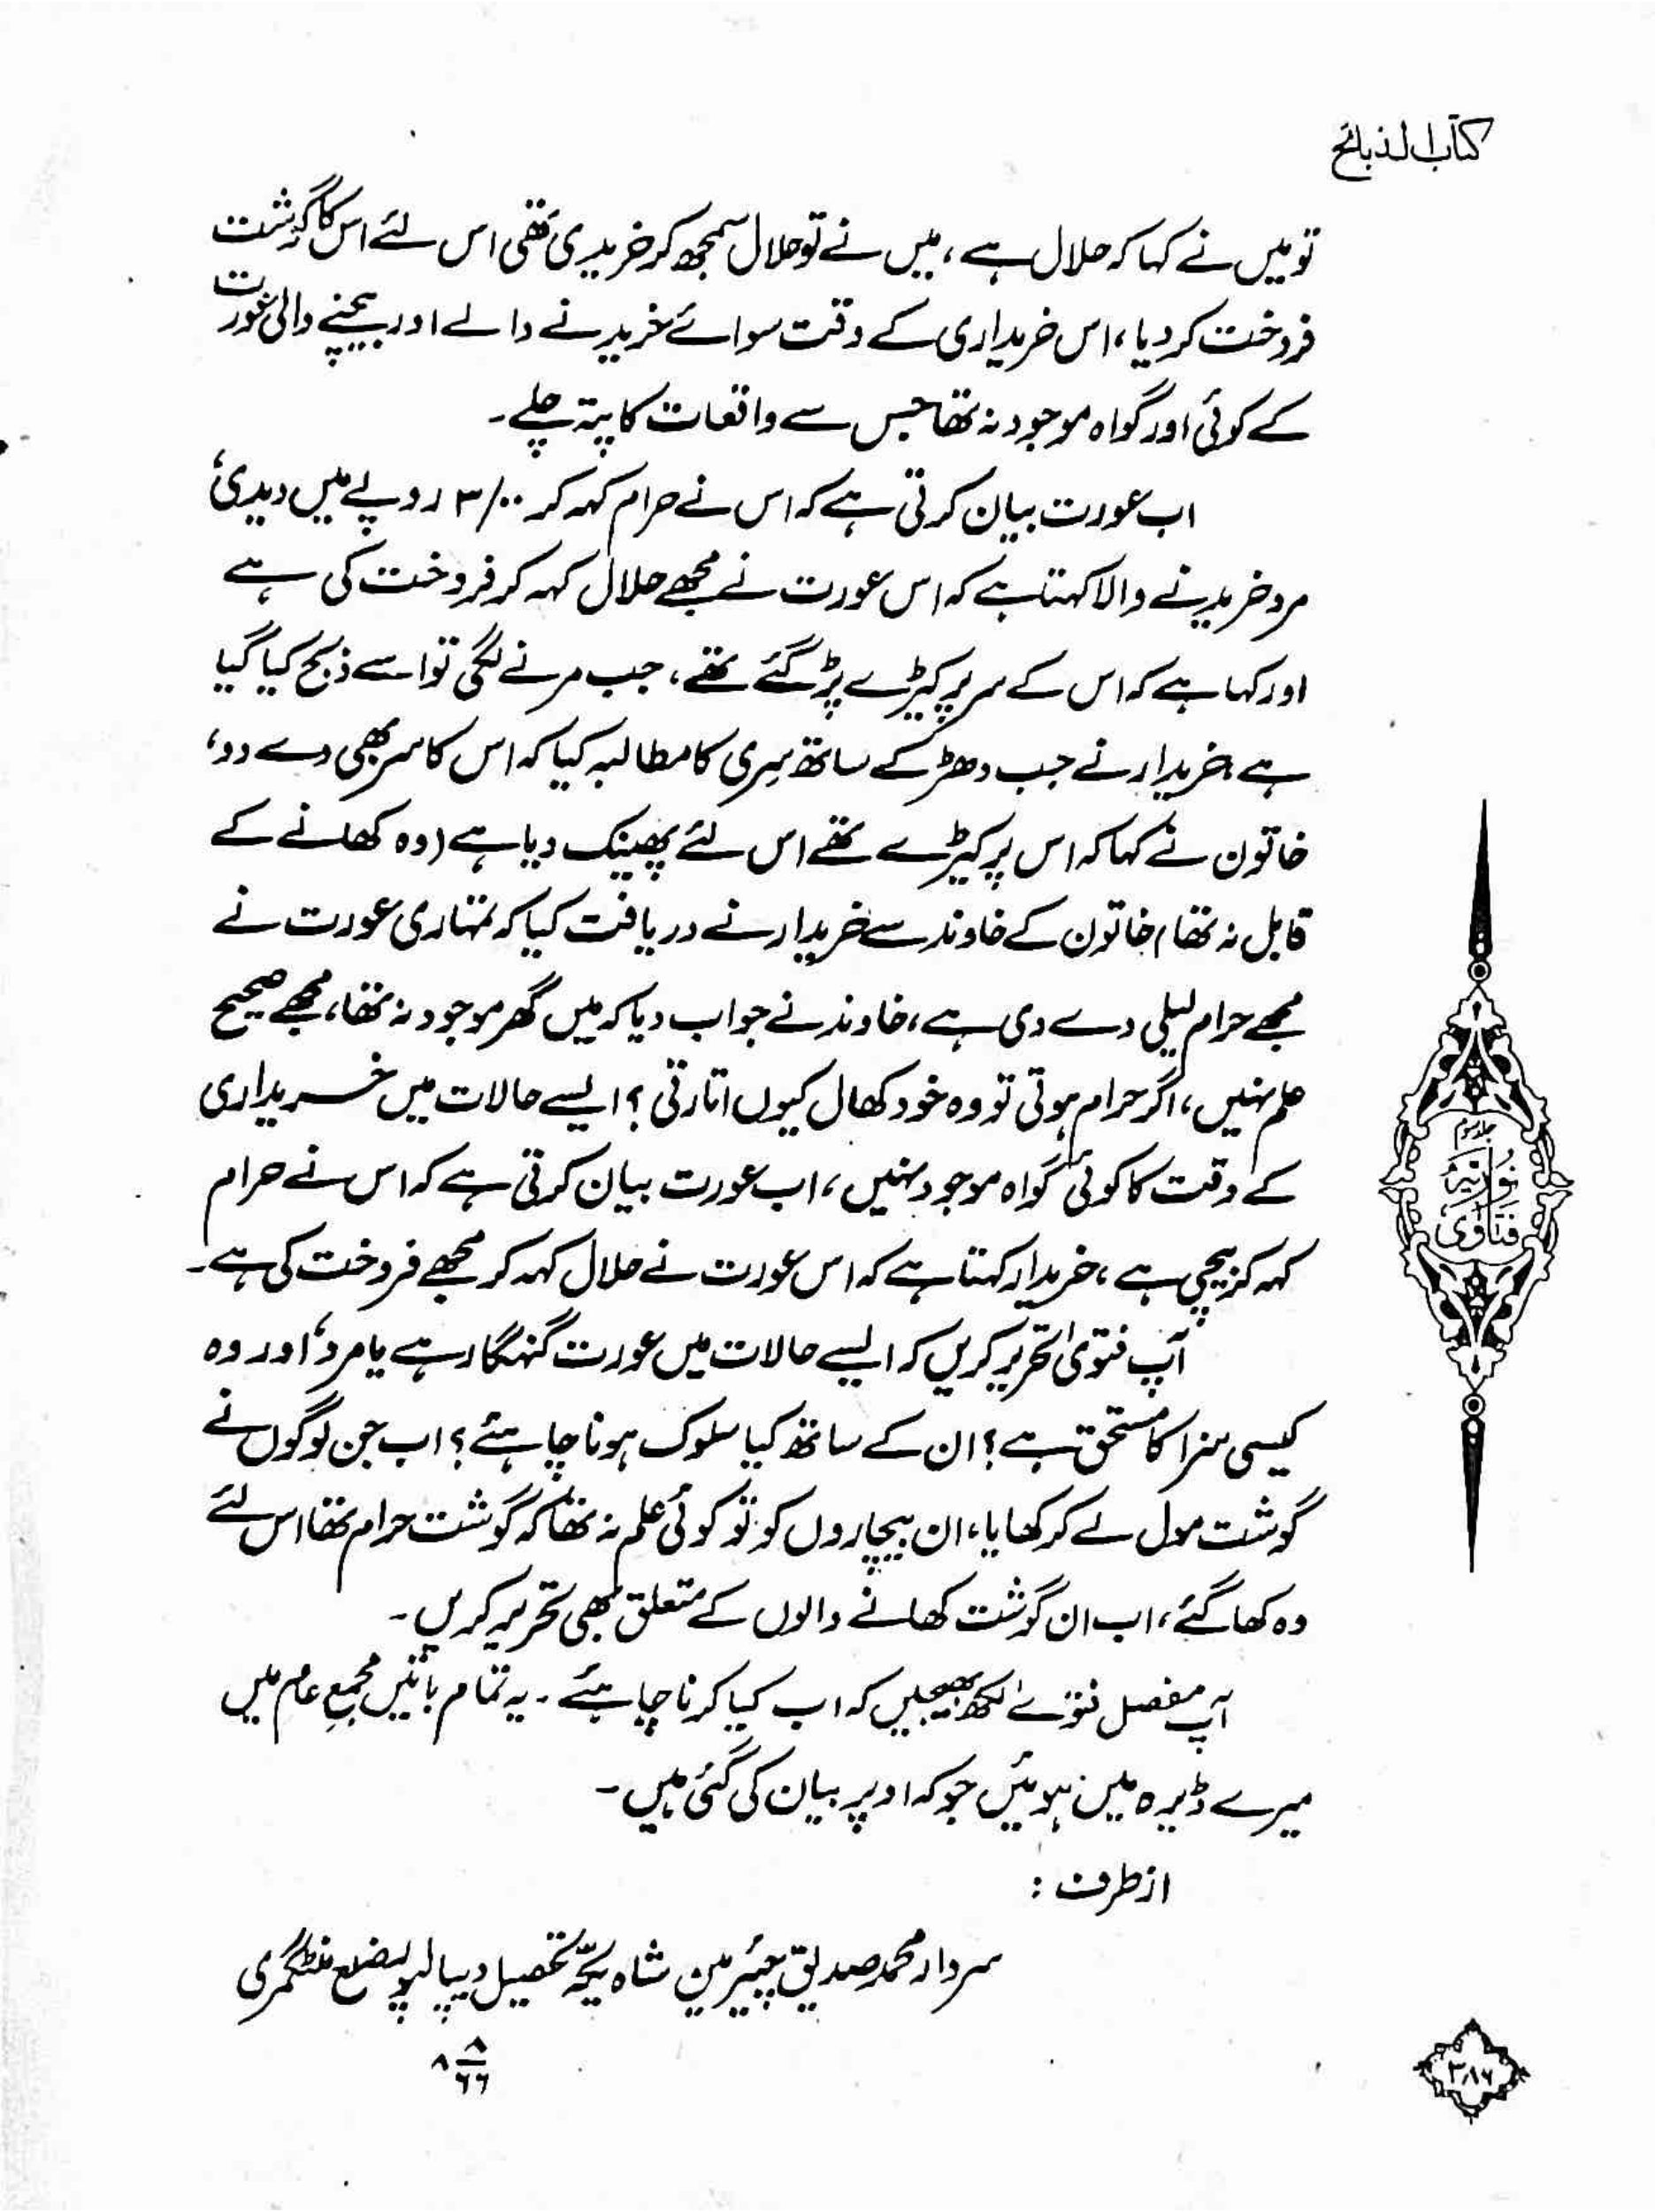 کتاب الذبائح
تو میں نے کہا کہ حلال ہے، میں نے تو حلال سمجھ کر خریدی تھی اس لئے اس کا گوشت
فروخت کر دیا، اس خریداری کے وقت سوائے خریدنے والے اور بیچنے والی عورت
کے کوئی اور گواہ موجود نہ تھا جس سے واقعات کا پتہ چلے۔
اب عورت بیان کرتی ہے کہ اس نے حرام کہہ کر ۳/۰۰ روپے میں دیدی،
مرد خریدنے والا کہتا ہے کہ اس عورت نے مجھے حلال کہہ کر فروخت کی ہے
اور کہا ہے کہ اس کے سر پر کیڑے پڑ گئے تھے، جب مرنے لگی تو اسے ذبح کیا گیا
ہے، خریدار نے جب دھڑ کے ساتھ سِری کا مطالبہ کیا کہ اس کا سر بھی دے دو،
خاتون نے کہا کہ اس پر کیڑے تھے اس لئے پھینک دیا ہے (وہ کھانے کے
قابل نہ تھا) خاتون کے خاوند سے خریدار نے دریافت کیا کہ تمہاری عورت نے
مجھے حرام لیلی دے دی ہے، خاوند نے جواب دیا کہ میں گھر موجود نہ تھا، مجھے صحیح
علم نہیں، اگر حرام ہوتی تو وہ خود کھال کیوں اتارتی؟ ایسے حالات میں خریداری
کے وقت کا کوئی گواہ موجود نہیں، اب عورت بیان کرتی ہے کہ اس نے حرام
کہہ کر بیچی ہے، خریدار کہتا ہے کہ اس عورت نے حلال کہہ کر مجھے فروخت کی ہے۔
آپ فتویٰ تحریر کریں کہ ایسے حالات میں عورت گنہگار ہے یا مرد، اور وہ
کیسی سزا کا مستحق ہے؟ ان کے ساتھ کیا سلوک ہونا چاہئے؟ اب جن لوگوں نے
گوشت مول لے کر کھایا، ان بیچاروں کو تو کوئی علم نہ تھا کہ گوشت حرام تھا اس لئے
وہ کھا گئے، اب ان گوشت کھانے والوں کے متعلق بھی تحریر کریں۔
آپ مفصل فتوےٰ لکھ بھیجیں کہ اب کیا کرنا چاہئے۔ یہ تمام باتیں مجمع عام میں
میرے ڈیرہ میں ہوئیں جو کہ اوپر بیان کی گئی ہیں۔
از طرف :
سردار محمد صدیق چیئرمین شاہ یکّہ تحصیل دیپالپور ضلع منٹگمری
۸ ۸/۶۶
جلد سوم
فتاویٰ نوریہ
۳۸۶